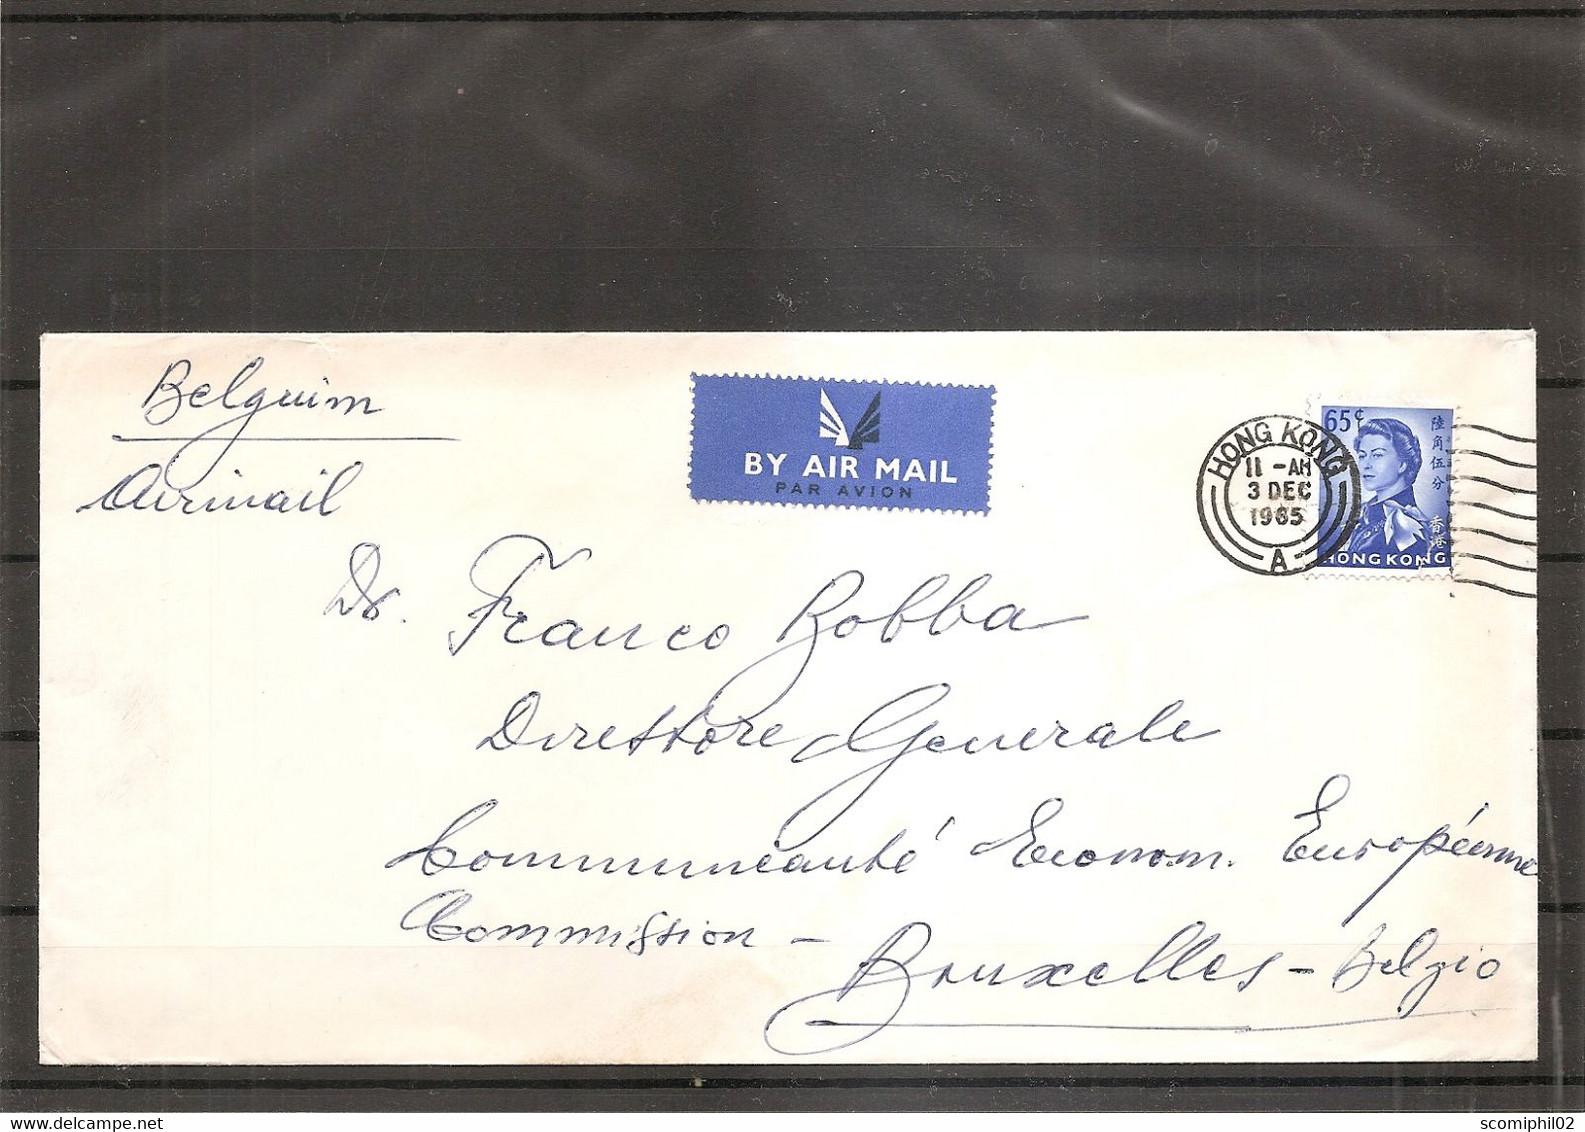 Belguim
Airmail
BY AIR MAIL
PAR AVION
HONG KONG
11 - AM
3 DEC
1965
A
65¢
陸角伍分
香港
HONG KONG
Dr. Franco Bobba
Direttore Generale
Communeauté Econom. Européenne
Commission -
Bruxelles - Belgio
delcampe.net
scomiphil02